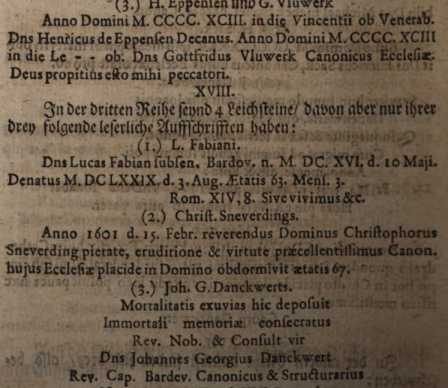 (3.) H. Eppensen und G. Vluwerk
Anno Domini M. CCCC. XCIII. in die Vincentii ob Venerab.
Dns Henricus de Eppensen Decanus. Anno Domini M. CCCC. XCIII
in die Le - - ob. Dns Gottfridus Vluwerk Canonicus Ecclesiæ.
Deus propitius esto mihi peccatori.
XVIII.
In der dritten Reihe seynd 4 Leichsteine/ davon aber nur ihrer
drey folgende leserliche Auffschrifften haben:
(1.) L. Fabiani.
Dns Lucas Fabian subsen. Bardov. n. M. DC. XVI. d. 10 Maji.
Denatus M. DC LXXIX. d. 3. Aug. Ætatis 63. Mens. 3.
Rom. XIV, 8. Sive vivimus &c.
(2.) Christ. Sneverdings.
Anno 1601 d. 15. Febr. reverendus Dominus Christophorus
Sneverding pietate, eruditione & virtute præcellentissimus Canon.
hujus Ecclesiæ placide in Domino obdormivit ætatis 67.
(3.) Joh. G. Danckwerts.
Mortalitatis exuvias hic deposuit
Immortali memoriæ consecratus
Rev. Nob. & Consult vir
Dns Johannes Georgius Danckwert
Rev. Cap. Bardev. Canonicus & Structurarius